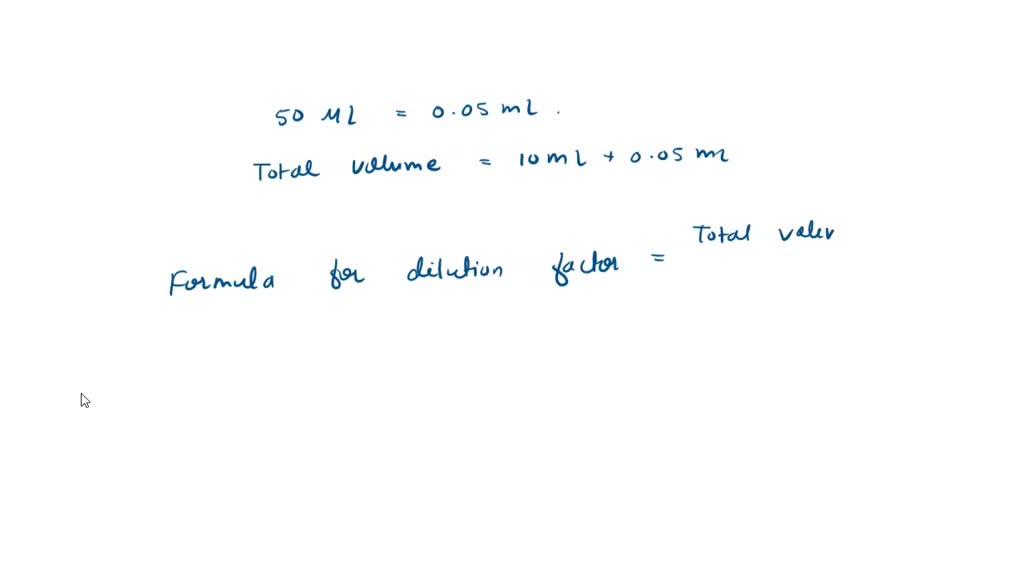 50 ML = 0.05 ml.
Total volume = 10 ml + 0.05 ml
Total valev
Formula for dilution factor =